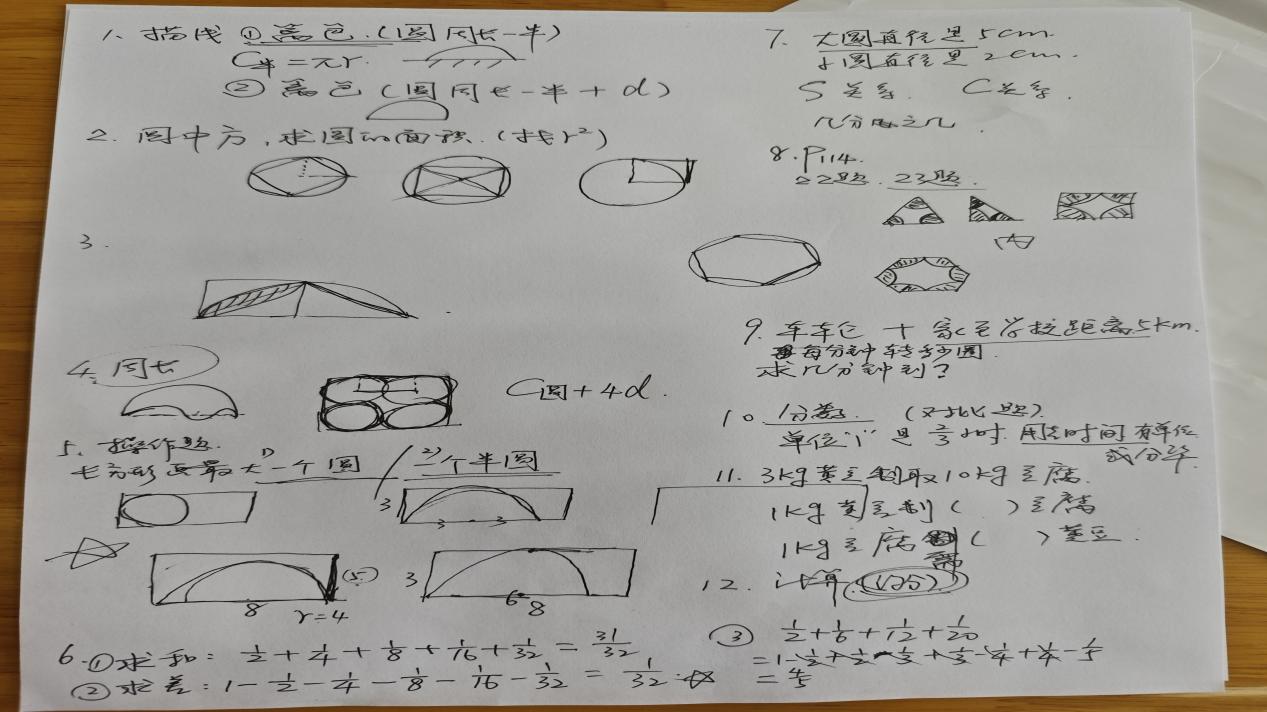 1. 描线 ① 篱笆.(圆周长一半)
C半=πr.
② 篱笆(圆周长一半+d)
2. 圆中方,求圆的面积.(找r²)
3.
4. 周长
C圆+4d.
5. 操作题.
长方形画最大 1) 一个圆 / 2) 个半圆
3
3 3
8 r=4 ⑤
3 6 8
6. ① 求和: 1/2+1/4+1/8+1/16+1/32=31/32
② 求差: 1-1/2-1/4-1/8-1/16-1/32=1/32
7. 大圆直径是5cm.
小圆直径是2cm.
S关系. C关系.
几分之几.
8. P114.
22题. 23题.
9. 车轮 家至学校距离5km.
每分钟转多少圈.
求几分钟到?
10. 分数. (对比题).
单位"1"是 小时. 用去时间 有单位
或分率
11. 3kg黄豆制取10kg豆腐.
1kg黄豆制( )豆腐
1kg豆腐 ( )黄豆.
12. 计算 (125)
③ 1/2+1/6+1/12+1/20
=1-1/2+1/2-1/3+1/3-1/4+1/4-1/5
=4/5